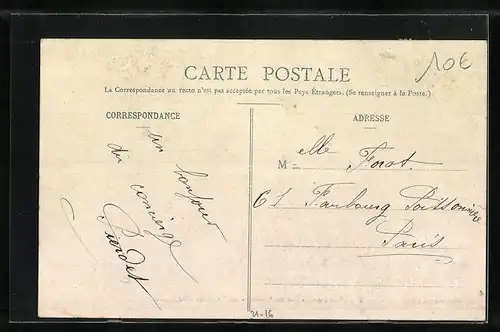 10€
CARTE POSTALE
La Correspondance au recto n'est pas acceptée par tous les Pays Étrangers. (Se renseigner à la Poste.)
CORRESPONDANCE
un bonjour
du concierge
ADRESSE
Melle Forst.
61 Faubourg Poissonnière
Paris
21-16